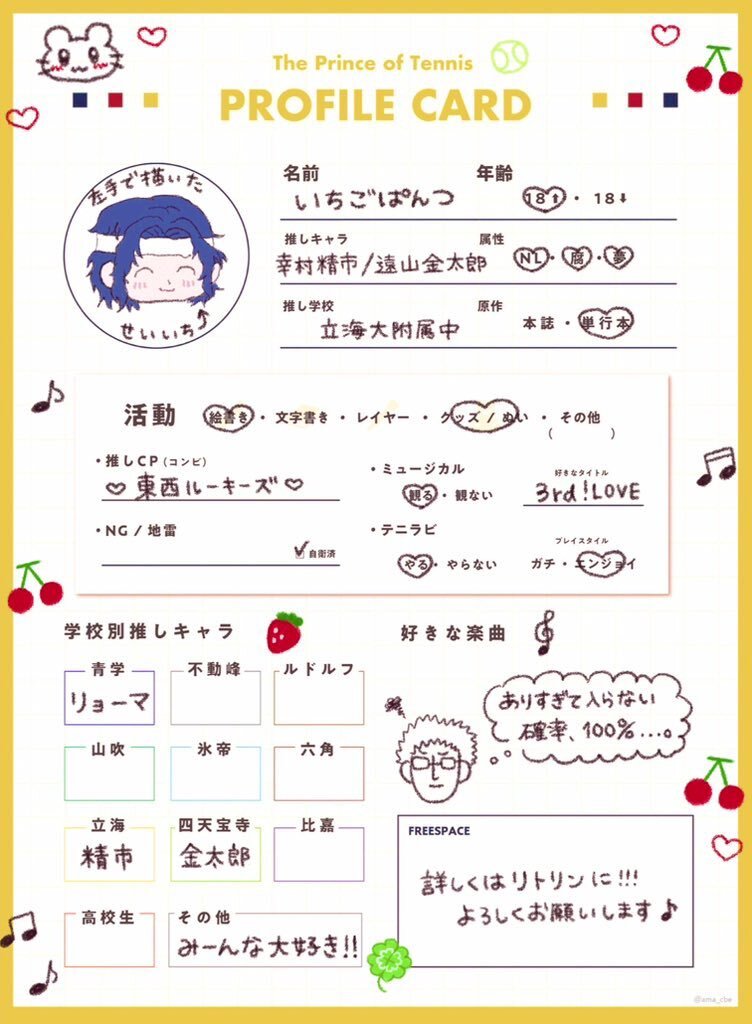 The Prince of Tennis
PROFILE CARD
左手で描いた
せいいち
名前
いちごぱんつ
年齢
18⬆・18⬇
推しキャラ
幸村精市/遠山金太郎
属性
NL・腐・夢
推し学校
立海大附属中
原作
本誌・単行本
活動
絵書き・文字書き・レイヤー・グッズ/ぬい・その他
(　　　)
・推しCP(コンビ)
♡東西ルーキーズ♡
・ミュージカル
観る・観ない
好きなタイトル
3rd!LOVE
・NG / 地雷
自衛済
・テニラビ
やる・やらない
プレイスタイル
ガチ・エンジョイ
学校別推しキャラ
青学
リョーマ
不動峰
ルドルフ
山吹
氷帝
六角
立海
精市
四天宝寺
金太郎
比嘉
高校生
その他
みーんな大好き!!
好きな楽曲
ありすぎて入らない
確率、100%...。
FREESPACE
詳しくはリトリンに!!!
よろしくお願いします♪
@ama_cbe